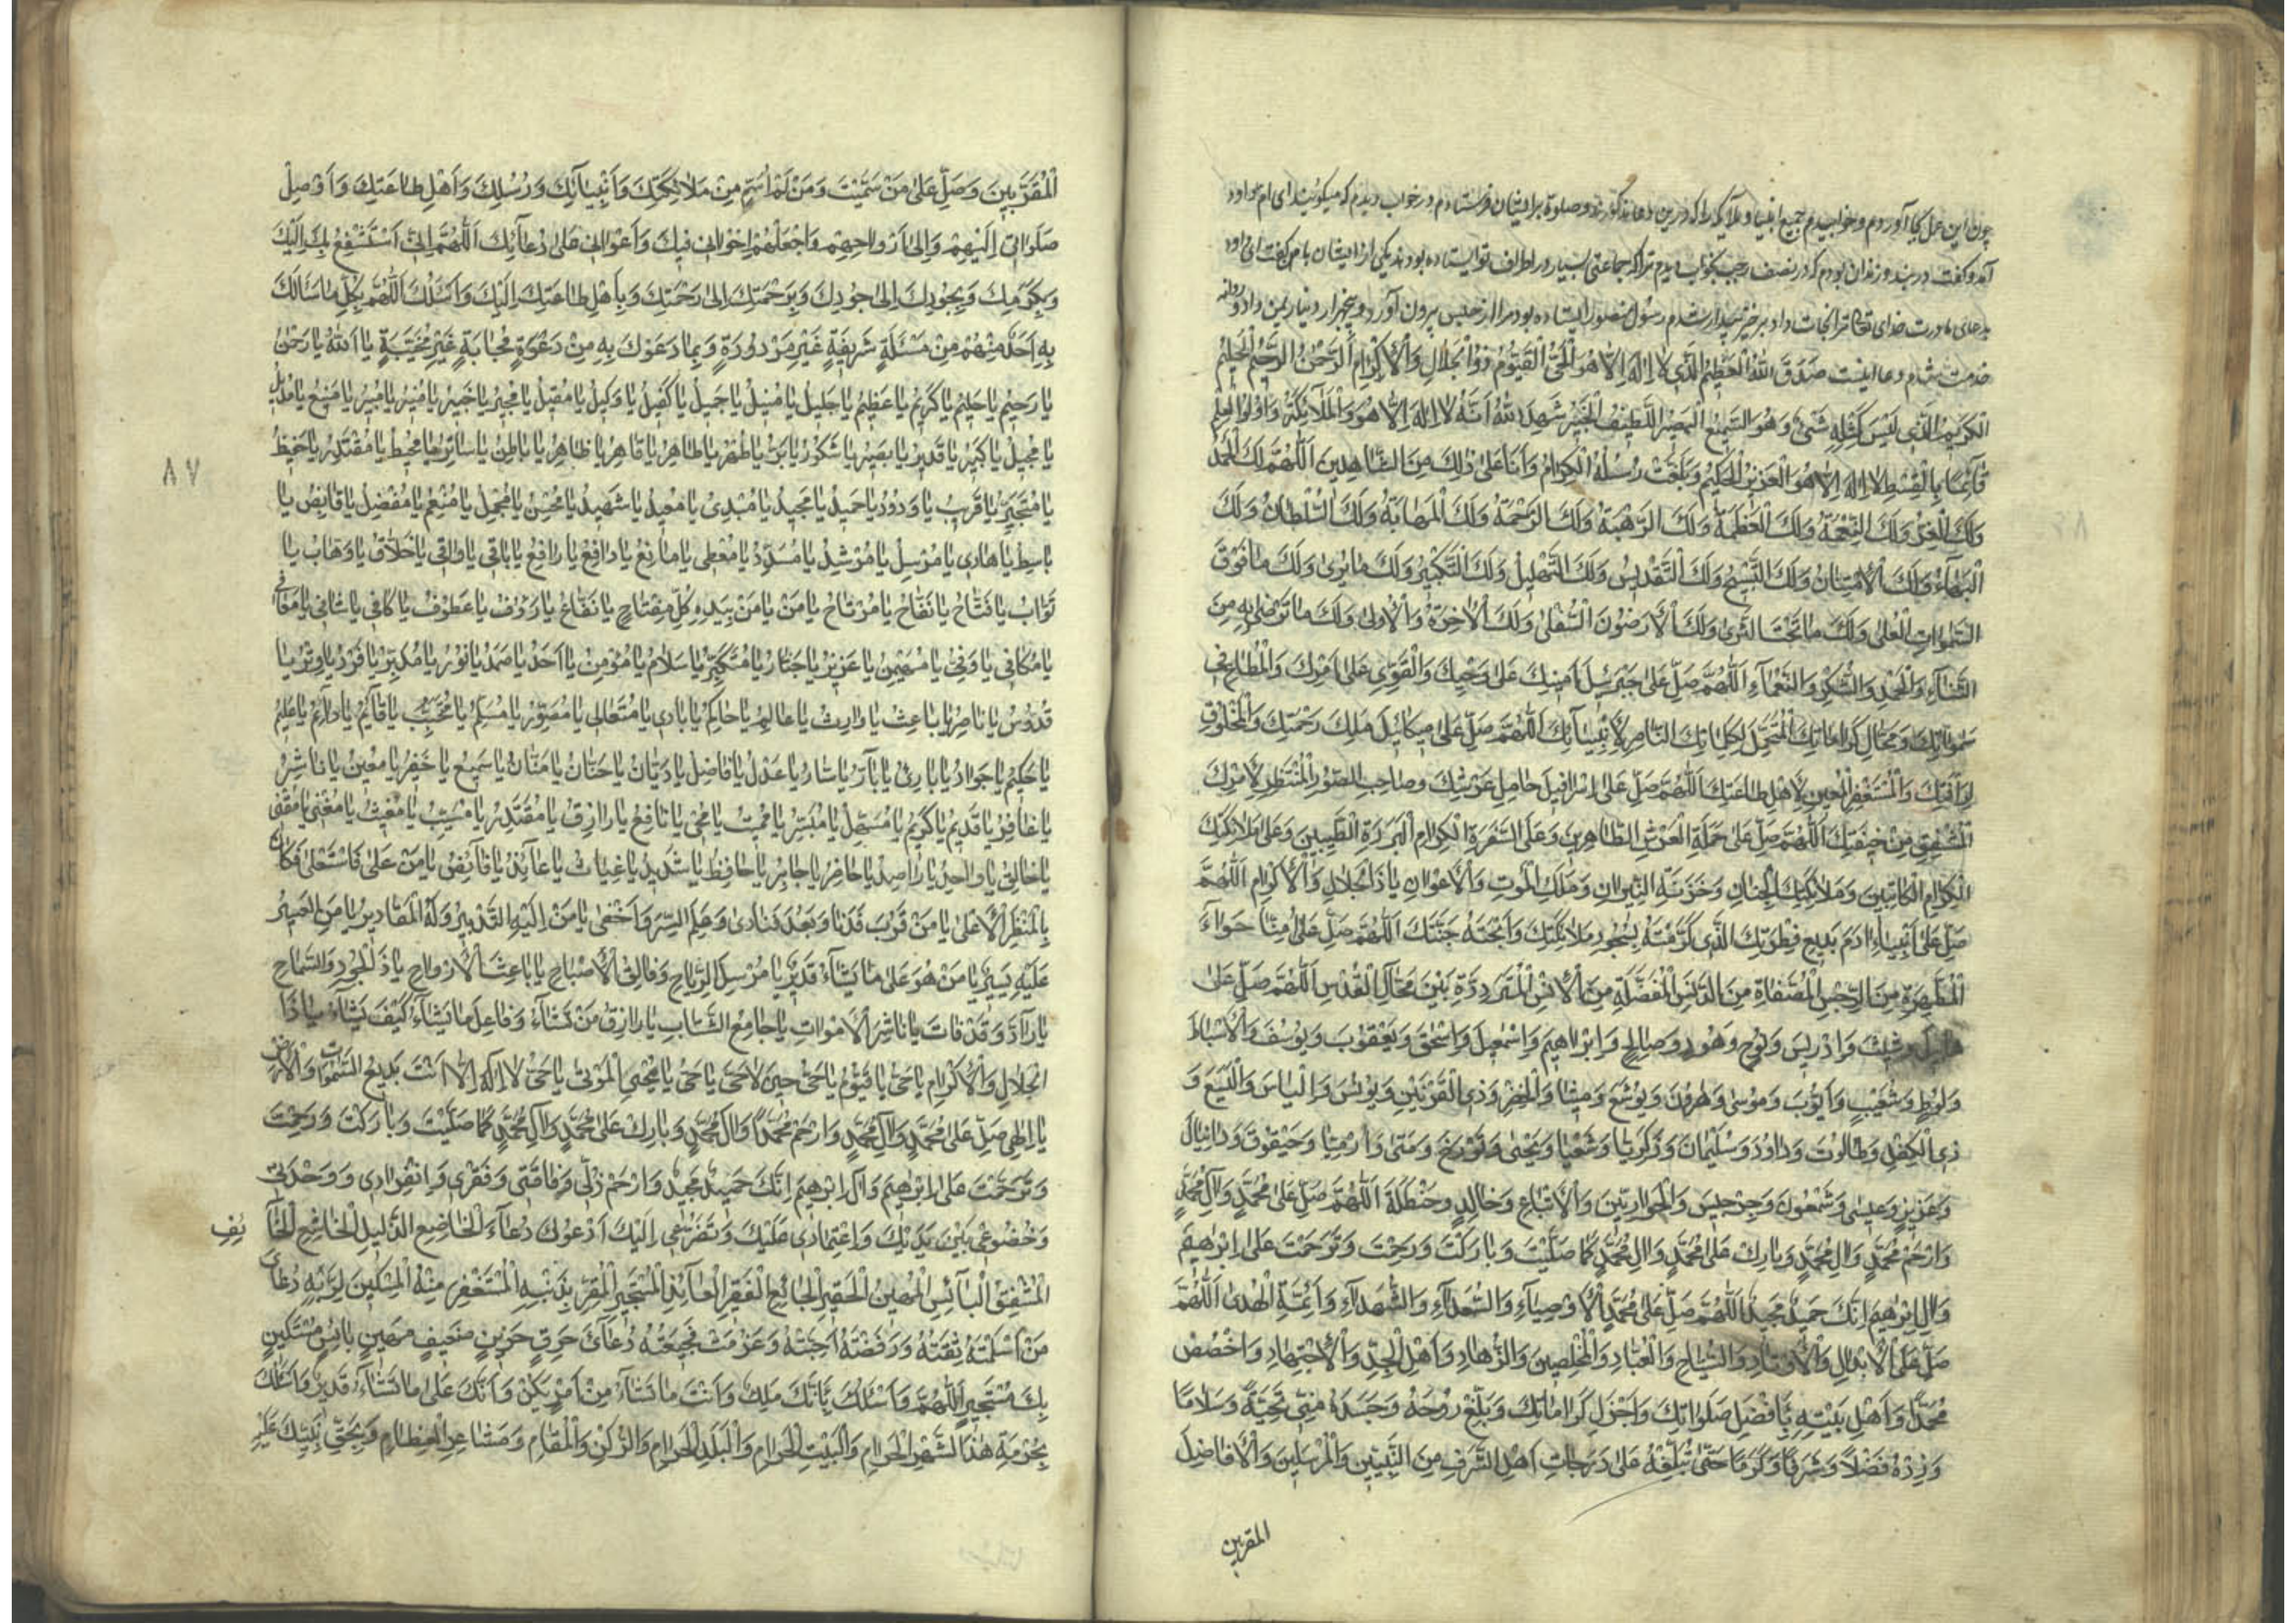 چون این عمل بجا آوردم و خوابیدم جمیع انبیا و ملائکه را که درین دعا مذکورند و صلوة بر ایشان فرستادم در خواب دیدم که میگویند ای ام داود
آمد و گفت در بند و زندان بودم که در نصف رجب بخواب دیدم ترا که جماعتی بسیار در اطراف تو ایستاده بودند یکی از ایشان بامن گفت
بدعای مادرت خدای تعالی ترا نجات داد برخیز بیدار شدم رسول منصور ایستاده بود مرا از حبس بیرون آورد و پنجهزار دینار بمن داد و روانه
خدمت شدم و دعا اینست صَدَقَ اللّٰهُ الْعَظِيمُ الَّذِي لَا اِلٰهَ اِلَّا هُوَ الْحَيُّ الْقَيُّومُ ذُو الْجَلَالِ وَالْاِكْرَامِ الرَّحْمٰنُ الرَّحِيمُ الْحَلِيمُ
الْكَرِيمُ الَّذِي لَيْسَ كَمِثْلِهِ شَيْءٌ وَهُوَ السَّمِيعُ الْبَصِيرُ اللَّطِيفُ الْخَبِيرُ شَهِدَ اللّٰهُ اَنَّهُ لَا اِلٰهَ اِلَّا هُوَ وَالْمَلَائِكَةُ وَاُولُوا الْعِلْمِ
قَائِمًا بِالْقِسْطِ لَا اِلٰهَ اِلَّا هُوَ الْعَزِيزُ الْحَكِيمُ وَبَلَّغَتْ رُسُلُهُ الْكِرَامُ وَاَنَا عَلٰى ذٰلِكَ مِنَ الشَّاهِدِينَ اَللّٰهُمَّ لَكَ الْحَمْدُ
وَلَكَ الْعِزُّ وَلَكَ النِّعْمَةُ وَلَكَ الْعَظَمَةُ وَلَكَ الرَّهْبَةُ وَلَكَ الرَّحْمَةُ وَلَكَ الْمَهَابَةُ وَلَكَ السُّلْطَانُ وَلَكَ
الْبَهَاءُ وَلَكَ الْاِمْتِنَانُ وَلَكَ التَّسْبِيحُ وَلَكَ التَّقْدِيسُ وَلَكَ التَّهْلِيلُ وَلَكَ التَّكْبِيرُ وَلَكَ مَا يُرٰى وَلَكَ مَا فَوْقَ
السَّمٰوَاتِ الْعُلٰى وَلَكَ مَا تَحْتَ الثَّرٰى وَلَكَ الْاَرَضُونَ السُّفْلٰى وَلَكَ الْاٰخِرَةُ وَالْاُولٰى وَلَكَ مَا تَرْضٰى بِهِ مِنَ
الثَّنَاءِ وَالْحَمْدِ وَالشُّكْرِ وَالنَّعْمَاءِ اَللّٰهُمَّ صَلِّ عَلٰى جَبْرَئِيلَ اَمِينِكَ عَلٰى وَحْيِكَ وَالْقَوِيِّ عَلٰى اَمْرِكَ وَالْمُطَاعِ فِي
سَمٰوَاتِكَ وَمَحَالِّ كَرَامَاتِكَ الْمُتَحَمِّلِ لِكَلِمَاتِكَ النَّاصِرِ لِاَنْبِيَائِكَ اَللّٰهُمَّ صَلِّ عَلٰى مِيكَائِيلَ مَلَكِ رَحْمَتِكَ وَالْمَخْلُوقِ
لِرَاْفَتِكَ وَالْمُسْتَغْفِرِ الْمُعِينِ لِاَهْلِ طَاعَتِكَ اَللّٰهُمَّ صَلِّ عَلٰى اِسْرَافِيلَ حَامِلِ عَرْشِكَ وَصَاحِبِ الصُّورِ الْمُنْتَظِرِ لِاَمْرِكَ
الْمُشْفِقِ مِنْ خِيفَتِكَ اَللّٰهُمَّ صَلِّ عَلٰى حَمَلَةِ الْعَرْشِ الطَّاهِرِينَ وَعَلَى السَّفَرَةِ الْكِرَامِ الْبَرَرَةِ الطَّيِّبِينَ وَعَلٰى مَلَائِكَتِكَ
الْكِرَامِ الْكَاتِبِينَ وَمَلَائِكَةِ الْجِنَانِ وَخَزَنَةِ النِّيرَانِ وَمَلَكِ الْمَوْتِ وَالْاَعْوَانِ يَا ذَا الْجَلَالِ وَالْاِكْرَامِ اَللّٰهُمَّ
صَلِّ عَلٰى اَبِينَا اٰدَمَ بَدِيعِ فِطْرَتِكَ الَّذِي كَرَّمْتَهُ بِسُجُودِ مَلَائِكَتِكَ وَاَبَحْتَهُ جَنَّتَكَ اَللّٰهُمَّ صَلِّ عَلٰى اُمِّنَا حَوَّاءَ
الْمُطَهَّرَةِ مِنَ الرِّجْسِ الْمُصَفَّاةِ مِنَ الدَّنَسِ الْمُفَضَّلَةِ مِنَ الْاِنْسِ الْمُتَرَدِّدَةِ بَيْنَ مَحَالِّ الْقُدْسِ اَللّٰهُمَّ صَلِّ عَلٰى
هَابِيلَ وَشِيثَ وَاِدْرِيسَ وَنُوحٍ وَهُودٍ وَصَالِحٍ وَاِبْرَاهِيمَ وَاِسْمٰعِيلَ وَاِسْحٰقَ وَيَعْقُوبَ وَيُوسُفَ وَالْاَسْبَاطِ
وَلُوطٍ وَشُعَيْبٍ وَاَيُّوبَ وَمُوسٰى وَهٰرُونَ وَيُوشَعَ وَمِيشَا وَالْخِضْرِ وَذِي الْقَرْنَيْنِ وَيُونُسَ وَاِلْيَاسَ وَالْيَسَعَ وَ
ذِي الْكِفْلِ وَطَالُوتَ وَدَاوُدَ وَسُلَيْمَانَ وَزَكَرِيَّا وَشَعْيَا وَيَحْيٰى وَتُورَخَ وَمَتّٰى وَاَرْمِيَا وَحَيْقُوقَ وَدَانِيَالَ
وَعُزَيْرٍ وَعِيسٰى وَشَمْعُونَ وَجِرْجِيسَ وَالْحَوَارِيِّينَ وَالْاَتْبَاعِ وَخَالِدٍ وَحَنْظَلَةَ اَللّٰهُمَّ صَلِّ عَلٰى مُحَمَّدٍ وَاٰلِ مُحَمَّدٍ
وَارْحَمْ مُحَمَّدٍ وَاٰلِ مُحَمَّدٍ وَبَارِكْ عَلٰى مُحَمَّدٍ وَاٰلِ مُحَمَّدٍ كَمَا صَلَّيْتَ وَبَارَكْتَ وَرَحِمْتَ وَتَرَحَّمْتَ عَلٰى اِبْرٰهِيمَ
وَاٰلِ اِبْرٰهِيمَ اِنَّكَ حَمِيدٌ مَجِيدٌ اَللّٰهُمَّ صَلِّ عَلٰى مُحَمَّدٍ الْاَوْصِيَاءِ وَالسُّعَدَاءِ وَالشُّهَدَاءِ وَاَئِمَّةِ الْهُدٰى اَللّٰهُمَّ
صَلِّ عَلَى الْاَبْدَالِ وَالْاَوْتَادِ وَالسُّيَّاحِ وَالْعُبَّادِ وَالْمُخْلِصِينَ وَالزُّهَّادِ وَاَهْلِ الْجِدِّ وَالْاِجْتِهَادِ وَاخْصُصْ
مُحَمَّدًا وَاَهْلَ بَيْتِهِ بِاَفْضَلِ صَلَوَاتِكَ وَاَجْزَلِ كَرَامَاتِكَ وَبَلِّغْ رُوحَهُ وَجَسَدَهُ مِنِّي تَحِيَّةً وَسَلَامًا
وَزِدْهُ فَضْلًا وَشَرَفًا وَكَرَمًا حَتّٰى تُبَلِّغَهُ عَلٰى دَرَجَاتِ اَهْلِ الشَّرَفِ مِنَ النَّبِيِّينَ وَالْمُرْسَلِينَ وَالْاَفَاضِلِ
المقربین
الْمُقَرَّبِينَ وَصَلِّ عَلٰى مَنْ سَمَّيْتُ وَمَنْ لَمْ اُسَمِّ مِنْ مَلَائِكَتِكَ وَاَنْبِيَائِكَ وَرُسُلِكَ وَاَهْلِ طَاعَتِكَ وَاَوْصِلْ
صَلَوَاتِي اِلَيْهِمْ وَاِلٰى اَرْوَاحِهِمْ وَاجْعَلْهُمْ اِخْوَانِي فِيكَ وَاَعْوَانِي عَلٰى دُعَائِكَ اَللّٰهُمَّ اِنِّي اَسْتَشْفِعُ بِكَ اِلَيْكَ
وَبِكَرَمِكَ وَبِجُودِكَ اِلٰى جُودِكَ وَبِرَحْمَتِكَ اِلٰى رَحْمَتِكَ وَبِاَهْلِ طَاعَتِكَ اِلَيْكَ وَاَسْئَلُكَ اَللّٰهُمَّ بِكُلِّ مَا سَاَلَكَ
بِهِ اَحَدٌ مِنْهُمْ مِنْ مَسْئَلَةٍ شَرِيفَةٍ غَيْرِ مَرْدُودَةٍ وَبِمَا دَعَوْكَ بِهِ مِنْ دَعْوَةٍ مُجَابَةٍ غَيْرِ مُخَيَّبَةٍ يَا اَللّٰهُ يَا رَحْمٰنُ
يَا رَحِيمُ يَا حَلِيمُ يَا كَرِيمُ يَا عَظِيمُ يَا جَلِيلُ يَا مُنِيلُ يَا جَمِيلُ يَا كَفِيلُ يَا وَكِيلُ يَا مُقِيلُ يَا مُجِيرُ يَا خَبِيرُ يَا مُنِيرُ يَا مُبِيرُ يَا مَنِيعُ يَا مُدِيلُ
يَا مُحِيلُ يَا كَبِيرُ يَا قَدِيرُ يَا بَصِيرُ يَا شَكُورُ يَا بَرُّ يَا طُهْرُ يَا طَاهِرُ يَا قَاهِرُ يَا ظَاهِرُ يَا بَاطِنُ يَا سَاتِرُ يَا مُحِيطُ يَا مُقْتَدِرُ يَا حَفِيظُ
۸۷
يَا مُتَجَبِّرُ يَا قَرِيبُ يَا وَدُودُ يَا حَمِيدُ يَا مَجِيدُ يَا مُبْدِئُ يَا مُعِيدُ يَا شَهِيدُ يَا مُحْسِنُ يَا مُجْمِلُ يَا مُنْعِمُ يَا مُفْضِلُ يَا قَابِضُ يَا
بَاسِطُ يَا هَادِي يَا مُرْسِلُ يَا مُرْشِدُ يَا مُسَدِّدُ يَا مُعْطِي يَا مَانِعُ يَا دَافِعُ يَا رَافِعُ يَا بَاقِي يَا وَاقِي يَا خَلَّاقُ يَا وَهَّابُ يَا
تَوَّابُ يَا فَتَّاحُ يَا نَفَّاحُ يَا مُرْتَاحُ يَا مَنْ يَا مَنْ بِيَدِهِ كُلُّ مِفْتَاحٍ يَا نَفَّاعُ يَا رَؤُفُ يَا عَطُوفُ يَا كَافِي يَا شَافِي يَا مُعَافِي
يَا مُكَافِي يَا وَفِيُّ يَا مُهَيْمِنُ يَا عَزِيزُ يَا جَبَّارُ يَا مُتَكَبِّرُ يَا سَلَامُ يَا مُؤْمِنُ يَا اَحَدُ يَا صَمَدُ يَا نُورُ يَا مُدَبِّرُ يَا فَرْدُ يَا وِتْرُ يَا
قُدُّوسُ يَا نَاصِرُ يَا بَاعِثُ يَا وَارِثُ يَا عَالِمُ يَا حَاكِمُ يَا بَادِي يَا مُتَعَالِي يَا مُصَوِّرُ يَا مُسَلِّمُ يَا مُتَحَبِّبُ يَا قَائِمُ يَا دَائِمُ يَا عَلِيمُ
يَا حَكِيمُ يَا جَوَادُ يَا بَارِئُ يَا بَارُّ يَا سَارُّ يَا عَدْلُ يَا فَاصِلُ يَا دَيَّانُ يَا حَنَّانُ يَا مَنَّانُ يَا سَمِيعُ يَا خَفِيرُ يَا مُعِينُ يَا نَاشِرُ
يَا غَافِرُ يَا قَدِيمُ يَا كَرِيمُ يَا مُسَهِّلُ يَا مُيَسِّرُ يَا مُمِيتُ يَا مُحْيِي يَا نَافِعُ يَا رَازِقُ يَا مُقْتَدِرُ يَا مُسَبِّبُ يَا مُغِيثُ يَا مُغْنِي يَا مُقْنِي
يَا خَالِقُ يَا وَاحِدُ يَا رَاصِدُ يَا حَاضِرُ يَا جَابِرُ يَا حَافِظُ يَا شَدِيدُ يَا غِيَاثُ يَا عَائِدُ يَا قَابِضُ يَا مَنْ عَلٰى فَاسْتَعْلٰى فَكَانَ
بِالْمَنْظَرِ الْاَعْلٰى يَا مَنْ قَرُبَ فَدَنَا وَبَعُدَ فَنَاٰى وَعَلِمَ السِّرَّ وَاَخْفٰى يَا مَنْ اِلَيْهِ التَّدْبِيرُ وَلَهُ الْمَقَادِيرُ يَا مَنِ الْعَسِيرُ
عَلَيْهِ يَسِيرٌ يَا مَنْ هُوَ عَلٰى مَا يَشَاءُ قَدِيرٌ يَا مُرْسِلَ الرِّيَاحِ وَفَالِقَ الْاِصْبَاحِ يَا بَاعِثَ الْاَرْوَاحِ يَا ذَا الْجُودِ وَالسَّمَاحِ
يَا رَادَّ مَا قَدْ فَاتَ يَا نَاشِرَ الْاَمْوَاتِ يَا جَامِعَ الشَّتَاتِ يَا رَازِقَ مَنْ يَشَاءُ وَفَاعِلَ مَا يَشَاءُ كَيْفَ يَشَاءُ يَا ذَا
الْجَلَالِ وَالْاِكْرَامِ يَا حَيُّ يَا قَيُّومُ يَا حَيُّ حِينَ لَا حَيَّ يَا حَيُّ يَا مُحْيِيَ الْمَوْتٰى يَا حَيُّ لَا اِلٰهَ اِلَّا اَنْتَ بَدِيعُ السَّمٰوَاتِ وَالْاَرْضِ
يَا اِلٰهِي صَلِّ عَلٰى مُحَمَّدٍ وَاٰلِ مُحَمَّدٍ وَارْحَمْ مُحَمَّدًا وَاٰلَ مُحَمَّدٍ وَبَارِكْ عَلٰى مُحَمَّدٍ وَاٰلِ مُحَمَّدٍ كَمَا صَلَّيْتَ وَبَارَكْتَ وَرَحِمْتَ
وَتَرَحَّمْتَ عَلٰى اِبْرٰهِيمَ وَاٰلِ اِبْرٰهِيمَ اِنَّكَ حَمِيدٌ مَجِيدٌ وَارْحَمْ ذُلِّي وَفَاقَتِي وَفَقْرِي وَانْفِرَادِي وَوَحْدَتِي
وَخُضُوعِي بَيْنَ يَدَيْكَ وَاعْتِمَادِي عَلَيْكَ وَتَضَرُّعِي اِلَيْكَ اَدْعُوكَ دُعَاءَ الْخَاضِعِ الذَّلِيلِ الْخَاشِعِ الْخَائِفِ
الْمُشْفِقِ الْبَائِسِ الْمَهِينِ الْحَقِيرِ الْجَائِعِ الْفَقِيرِ الْعَائِذِ الْمُسْتَجِيرِ الْمُقِرِّ بِذَنْبِهِ الْمُسْتَغْفِرِ مِنْهُ الْمِسْكِينِ لِرَبِّهِ دُعَاءَ
مَنْ اَسْلَمَتْهُ ثِقَتُهُ وَرَفَضَتْهُ اَحِبَّتُهُ وَعَظُمَتْ فَجِيعَتُهُ دُعَاءَ حَرِقٍ حَزِينٍ ضَعِيفٍ مَهِينٍ بَائِسٍ مُسْتَكِينٍ
بِكَ مُسْتَجِيرٍ اَللّٰهُمَّ وَاَسْئَلُكَ بِاَنَّكَ مَلِيكٌ وَاَنْتَ مَا تَشَاءُ مِنْ اَمْرٍ يَكُنْ وَاَنَّكَ عَلٰى مَا تَشَاءُ قَدِيرٌ وَاَسْئَلُكَ
بِحُرْمَةِ هٰذَا الشَّهْرِ الْحَرَامِ وَالْبَيْتِ الْحَرَامِ وَالْبَلَدِ الْحَرَامِ وَالرُّكْنِ وَالْمَقَامِ وَمَشَاعِرِ الْعِظَامِ وَبِحَقِّ نَبِيِّكَ عَلَيْهِ